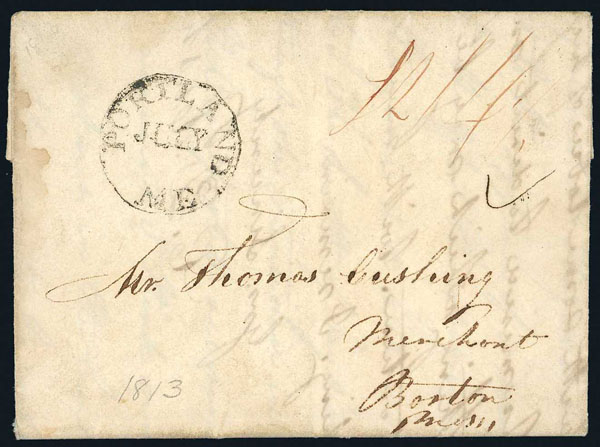 PORTLAND
JULY
ME
12 1/2
Mr. Thomas Cushing
Merchant
Boston
Mass
1813